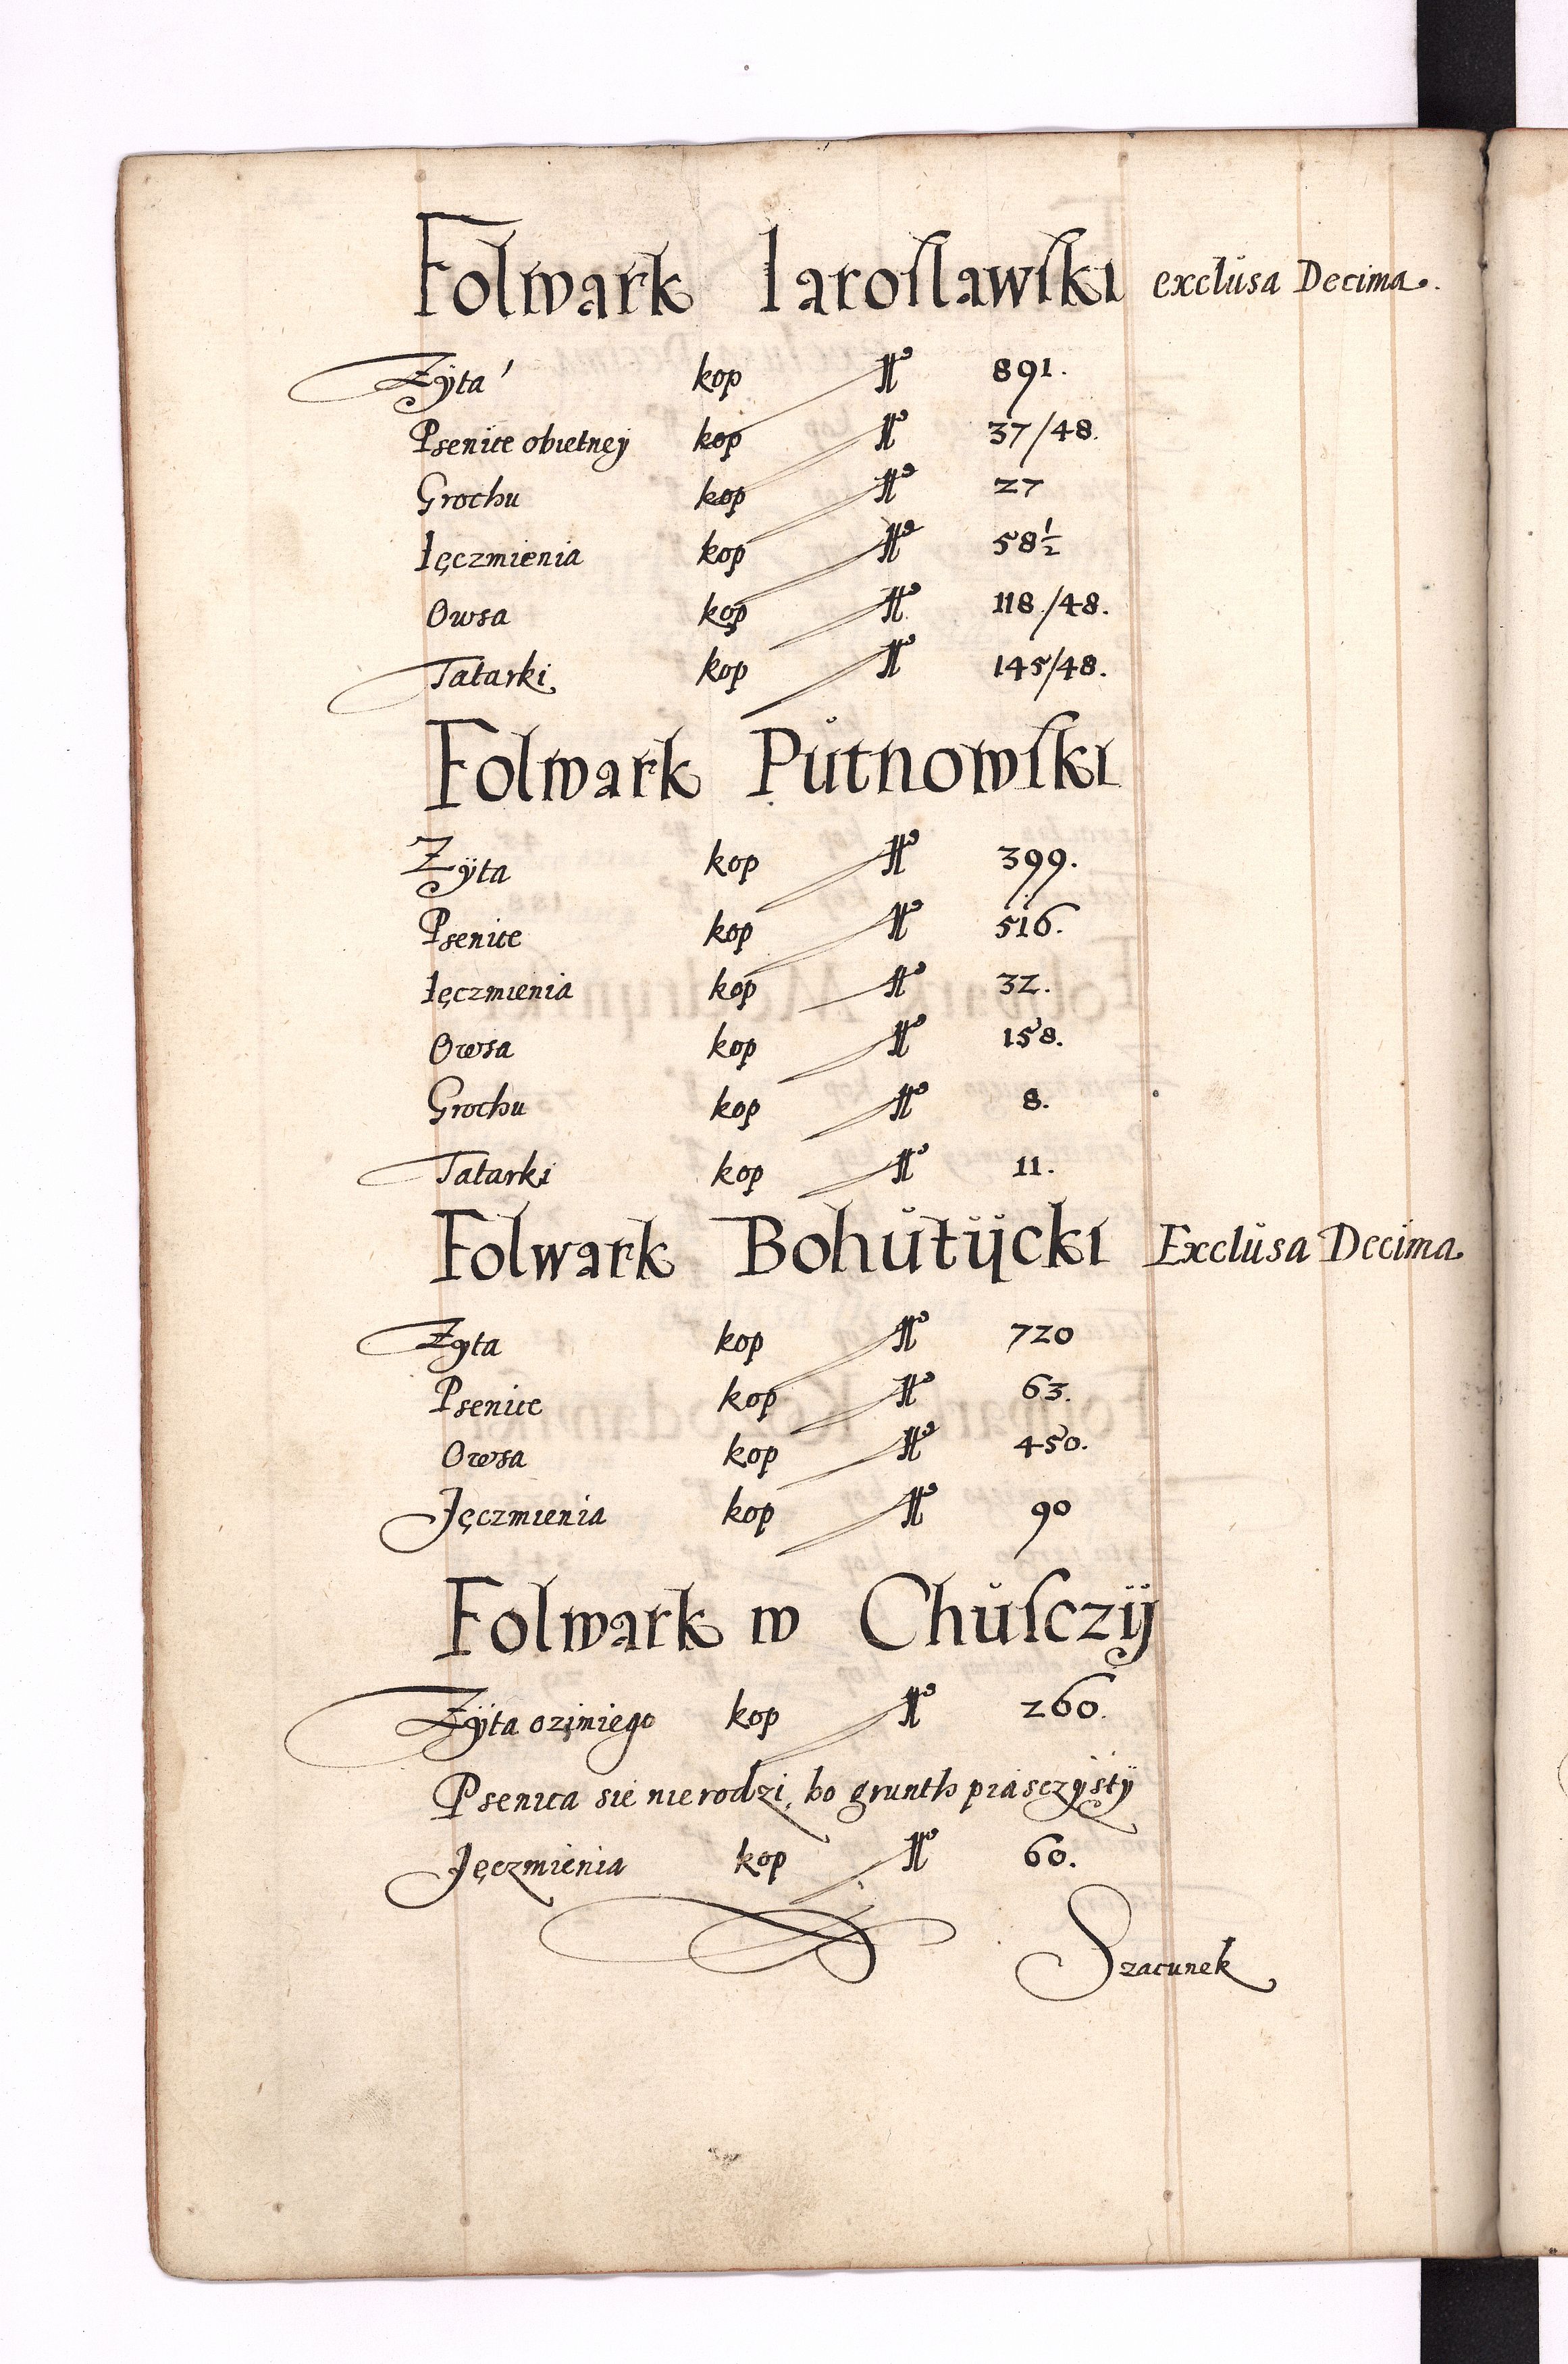 Folwark Iaroslawski exclusa Decima.
Zÿta kop No 891.
Psenice obietney kop No 37/48.
Grochu kop No 27
Ięczmienia kop No 58½
Owsa kop No 118./48.
Tatarki kop No 145/48.
Folwark Putnowski
Zÿta kop No 399.
Psenice kop No 516.
Ięczmienia kop No 32.
Owsa kop No 158.
Grochu kop No 8.
Tatarki kop No 11.
Folwark Bohutÿcki Exclusa Decima
Zyta kop No 720
Psenice kop No 63.
Owsa kop No 450.
Jęczmienia kop No 90
Folwark w Chusczÿ
Zÿta oziniego kop No 260.
Psenica sie nierodzi, bo grunth piasczÿstÿ
Jęczmienia kop No 60.
Szacunek